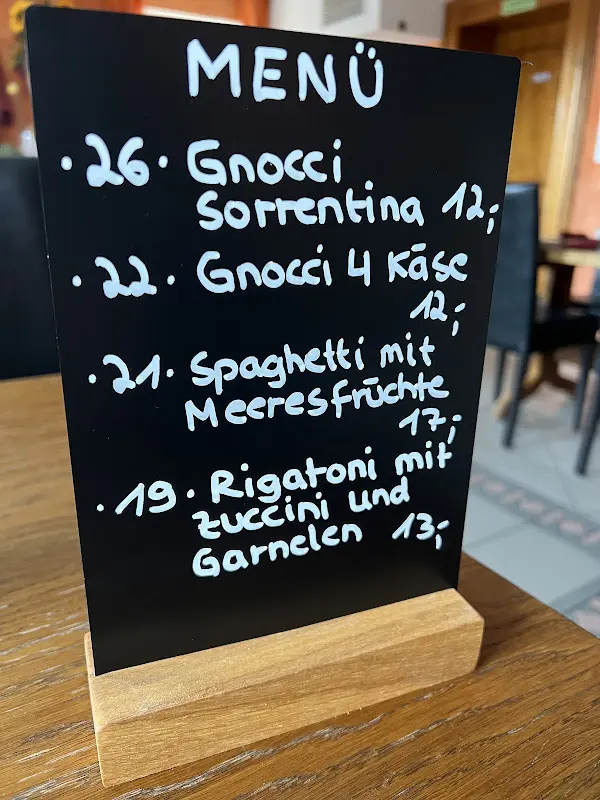 MENÜ
·26· Gnocci
Sorrentina 12,-
·22· Gnocci 4 Käse
12,-
·21· Spaghetti mit
Meeresfrüchte
17,-
·19· Rigatoni mit
Zuccini und
Garnelen 13,-